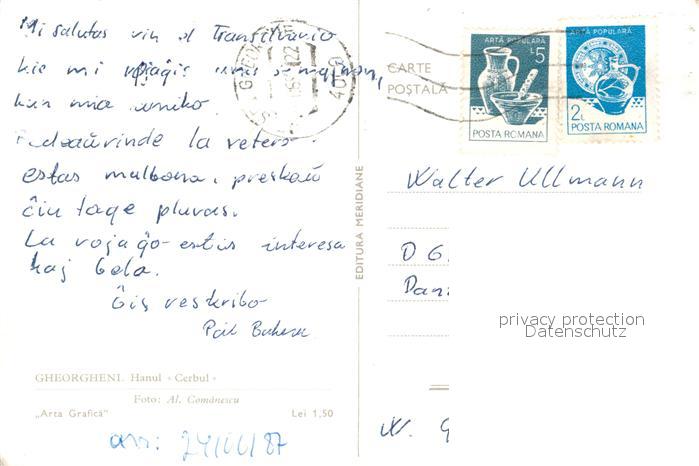 Mi salutas vin el Transilvanio
kie mi vojaĝis unu semajnon,
kun mia amiko.
Bedaŭrinde la vetero
estas malbona, preskaŭ
ĉiu tage pluvas.
La vojaĝo estis interesa
kaj bela.
Ĝis reskribo
Pál
GHEORGHENI. Hanul «Cerbul»
Foto: Al. Comănescu
„Arta Grafică” Lei 1,50
arr: 24/VII/87
EDITURA MERIDIANE
CARTE
POȘTALĂ
ARTĂ POPULARĂ
5L
POSTA ROMANA
ARTĂ POPULARĂ
2L
POSTA ROMANA
Walter Ullmann
D G
Dan
W. G
privacy protection
Datenschutz